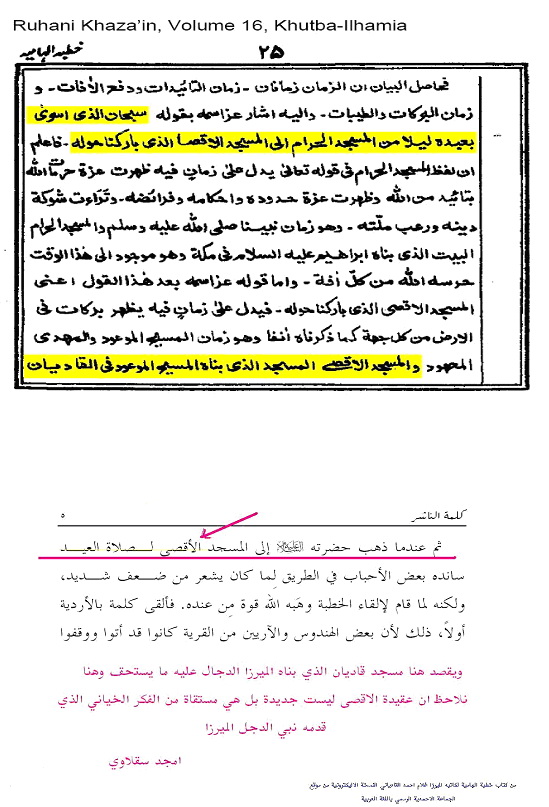 Ruhani Khaza'in, Volume 16, Khutba-Ilhamia
خطبة الهامية
٢٥
فحاصل البيان ان الزمان زمانان - زمان التائيدات ودفع الأفات - و
زمان البركات والطيبات - واليه اشار عزاسمه بقوله سبحان الذى اسرى
بعبده ليلا من المسجد الحرام الى المسجد الاقصا الذى باركنا حوله - فاعلم
ان لفظ المسجد الحرام فى قوله تعالى يدل على زمان فيه ظهرت عزة حرمات الله
بتائيد من الله وظهرت عزة حدوده واحكامه وفرائضه - وتراءت شوكة
دينه ورعب ملّته - وهو زمان نبينا صلى الله عليه وسلم والمسجد الحرام
البيت الذى بناه ابراهيم عليه السلام فى مكة وهو موجود الى هذا الوقت
حرسه الله من كل أفة - واما قوله عزاسمه بعد هذا القول اعنى
المسجد الاقصى الذى باركنا حوله - فيدل على زمان فيه يظهر بركات فى
الارض من كل جهة كما ذكرناه أنفا وهو زمان المسيح الموعود والمهدى
المعهود والمسجد الاقصى المسجد الذى بناه المسيح الموعود فى القاديان
كلمة الناشر
٥
ثم عندما ذهب حضرته إلى المسجد الأقصى لـصلاة العيد
سانده بعض الأحباب في الطريق لِما كان يشعر من ضعف شديد،
ولكنه لما قام لإلقاء الخطبة وهَبه الله قوة مِن عنده. فألقى كلمة بالأردية
أولاً، ذلك لأن بعض الهندوس والآريين من القرية كانوا قد أتوا ووقفوا
ويقصد هنا مسجد قاديان الذي بناه الميرزا الدجال عليه ما يستحق وهنا
نلاحظ ان عقيدة الاقصى ليست جديدة بل هي مستقاة من الفكر الخياني الذي
قدمه نبي الدجل الميرزا
امجد سقلاوي
من كتاب خطبة الهامية لكاتبه الميرزا غلام احمد القادياني النسخة الاليكترونية من موقع
الجماعة الاحمدية الرسمي باللغة العربية